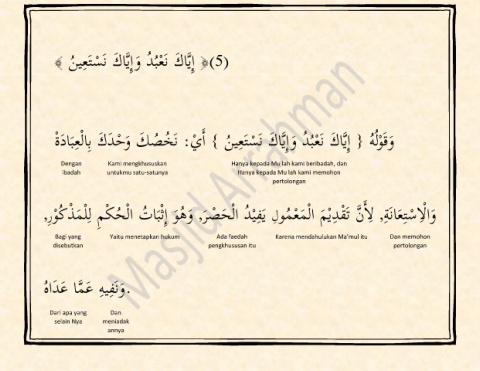 ﴿ إِيَّاكَ نَعْبُدُ وَإِيَّاكَ نَسْتَعِينُ ﴾(5)
وَقَوْلُهُ { إِيَّاكَ نَعْبُدُ وَإِيَّاكَ نَسْتَعِينُ } أَيْ: نَخُصُّكَ وَحْدَكَ بِالْعِبَادَةِ
Hanya kepada Mu lah kami beribadah, dan Hanya kepada Mu lah kami memohon pertolongan
Kami mengkhususkan untukmu satu-satunya
Dengan ibadah
وَالْاِسْتِعَانَةِ, لِأَنَّ تَقْدِيمَ الْمَعْمُولِ يَفِيْدُ الْحَصْرَ, وَهُوَ إِثْبَاتُ الْحُكْمِ لِلْمَذْكُوْرِ,
Dan memohon pertolongan
Karena mendahulukan Ma'mul itu
Ada faedah pengkhususan itu
Yaitu menetapkan hukum
Bagi yang disebutkan
وَنَفِيهِ عَمَّا عَدَاهُ.
Dan meniadak annya
Dari apa yang selain Nya
Masjid Arrahman